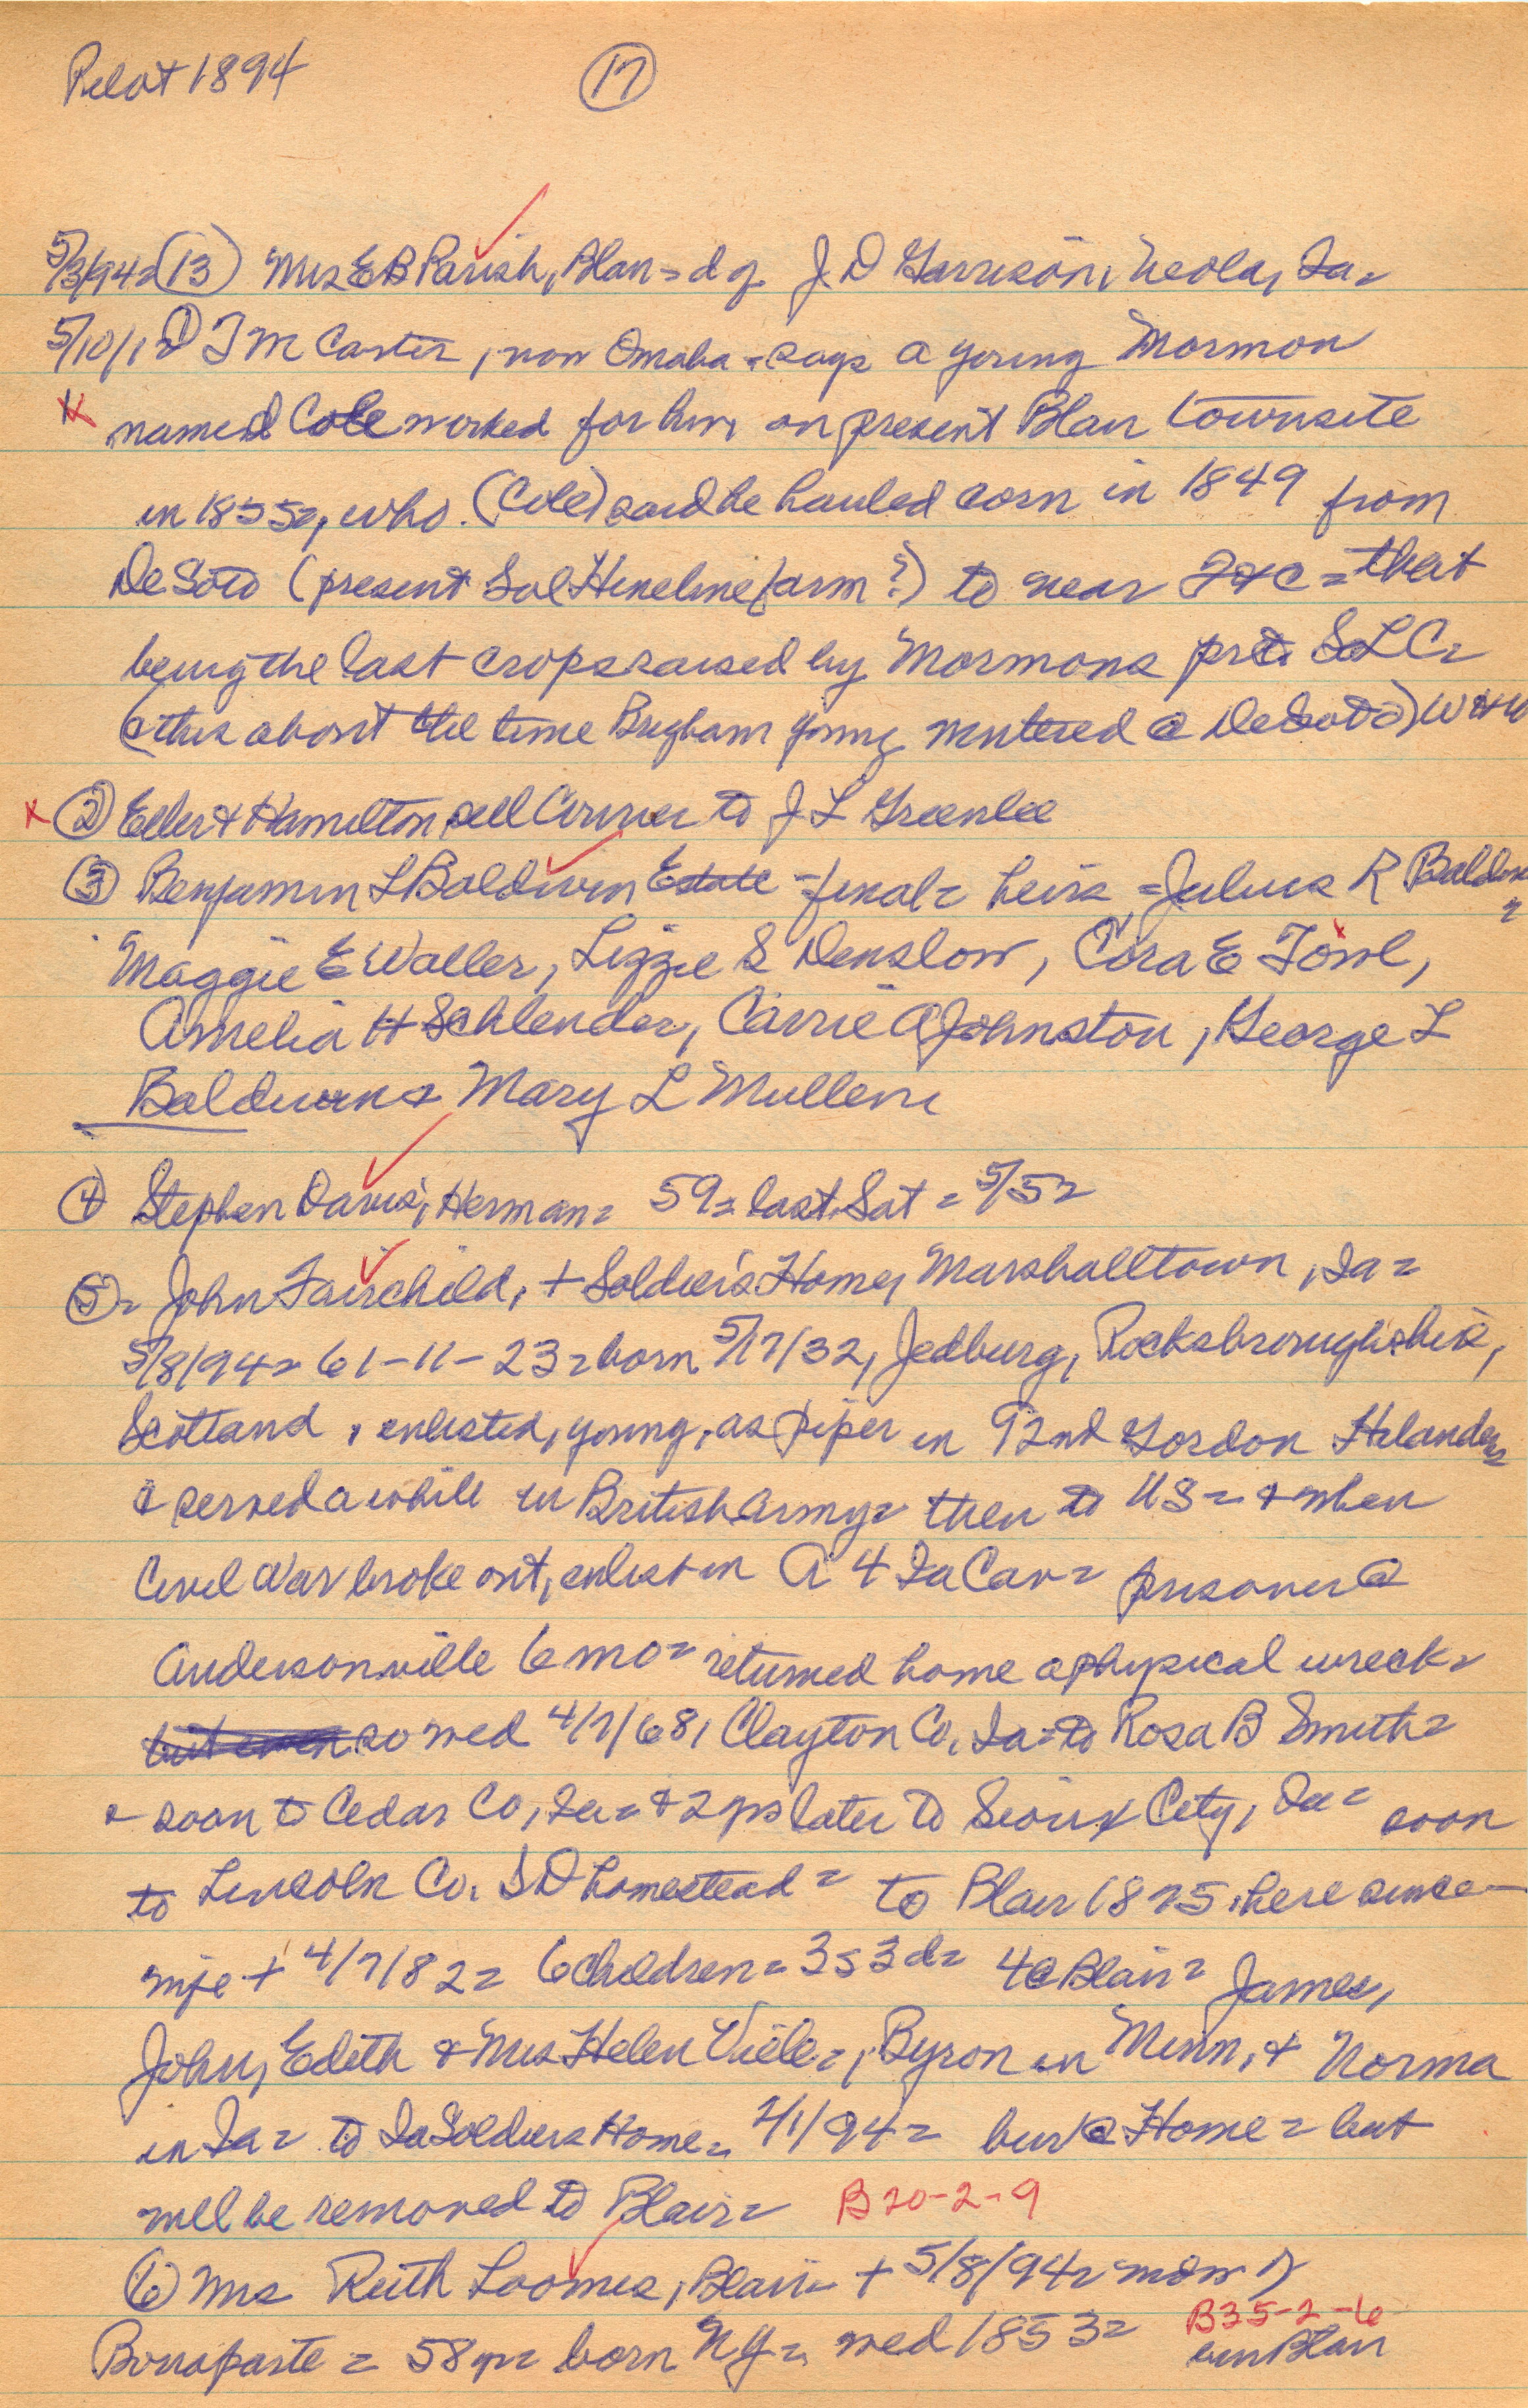 Pilot 1894 (17)
5/3/94= (13) Mrs E B Parish, Blair = d of J D Garrison, Neola, Ia=
5/10/ (1) T M Carter, now Omaha = says a young Mormon
named Cole worked for him on present Blair townsite
in 1855=, who (Cole) said he hauled corn in 1849 from
DeSoto (present Sol Hineline farm?) to near = that
being the last crops raised by Mormons SLC=
(this about the time Brigham Young wintered @ DeSoto) WHW
x (2) Eller & Hamilton sell Courier to J L Greenlee
(3) Benjamin L Baldwin Estate - final = heirs = Julius R Baldwin
Maggie E Waller, Lizzie S Denslow, Cora E Towl,
Amelia H Schlender, Carrie A Johnston, George L
Baldwin & Mary L Mullen
(4) Stephen Davis, Herman = 59 = last Sat = 5/5=
(5)= John Fairchild, + Soldiers Home, Marshalltown, Ia=
5/8/94= 61-11-23 = born 5/17/32, Jedburg, Rocksbroughshire,
Scotland, enlisted, young, as piper in 92nd Gordon Hilanders
& served awhile in British army = then to US = & when
Civil War broke out, enlist in A 4 Ia Cav = prisoner @
Andersonville 6 mo = returned home a physical wreck=
but even so wed 4/7/68, Clayton Co, Ia = to Rosa B Smith=
& soon to Cedar Co, Ia = & 2 yrs later to Sioux City, Ia = soon
to Lincoln Co. SD homestead = to Blair 1875, here since -
wife + 4/7/82= 6 children = 3s 3d= 4 @ Blair = James,
John, Edith & Mrs Helen Viele=, Byron in Minn, & Norma
in Ia= to Ia Soldiers Home = 2/1/94= bur @ Home = but
will be removed to Blair= B 20-2-9
(6) Mrs Ruth Loomis, Blair = + 5/8/94=
Bonaparte = 58 yr= born NY=, wed 1853= B35-2-6
bur Blair